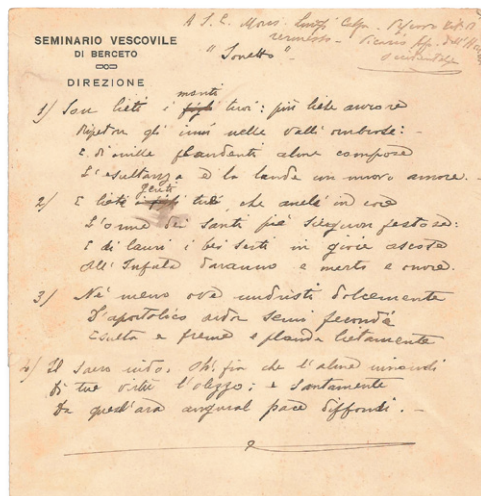 A S. E. Mons. Luigi
SEMINARIO VESCOVILE
DI BERCETO
DIREZIONE
"Sonetto"
monti
1) San lieti i figli tuoi: più liete ancore
Ripeton gl'inni nelle valli ombrose:
E di mille plaudenti alme compose
L'esultanza e la laude un nuovo amore. -
2) E lieti i figli tuoi, che aneli in core
L'orme dei Santi più seguon festose:
E di lauri i bei serti in gioie ascose
All' Infula daranno e merto e onore.
3) Nè meno ove nudristi dolcemente
D'apostolico ardor semi fecondi
Esulta e freme e plaude lietamente
4) Il sacro nido. Oh! fia che l'alme inondi
Di tue virtù l'olezzo; e santamente
Da quest'ara augural pace diffondi. -